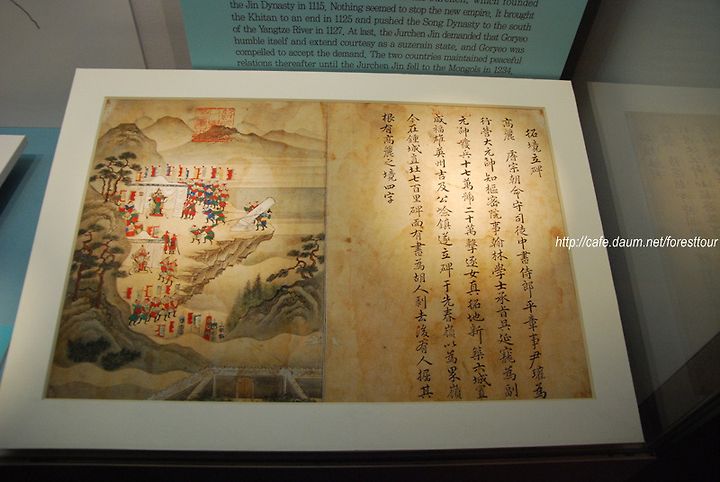 which founded
the Jin Dynasty in 1115. Nothing seemed to stop the new empire. It brought
the Khitan to an end in 1125 and pushed the Song Dynasty to the south
of the Yangtze River in 1127. At last, the Jurchen demanded that Goryeo
humble itself and extend courtesy as a suzerain state, and Goryeo was
compelled to accept the demand. The two countries maintained peaceful
relations thereafter until the Jurchen Jin fell to the Mongols in 1234.
拓境立碑
高麗 睿宗朝命守司徒中書侍郎平章事尹瓘為
行營大元帥知樞密院事翰林學士承旨吳延寵為副
元帥發兵十七萬號二十萬擊逐女真拓地新築六城宜
咸福雄英州吉及公嶮鎮遂立碑于先春嶺以為界嶺
今在鍾城直北七百里碑面有書為胡人剝去後有人掘其
根有高麗之境四字
http://cafe.daum.net/foresttour